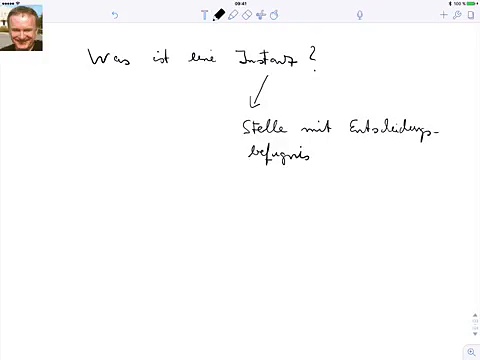 09:41
100 %
Was ist eine Instanz?
Stelle mit Entscheidungs-
befugnis